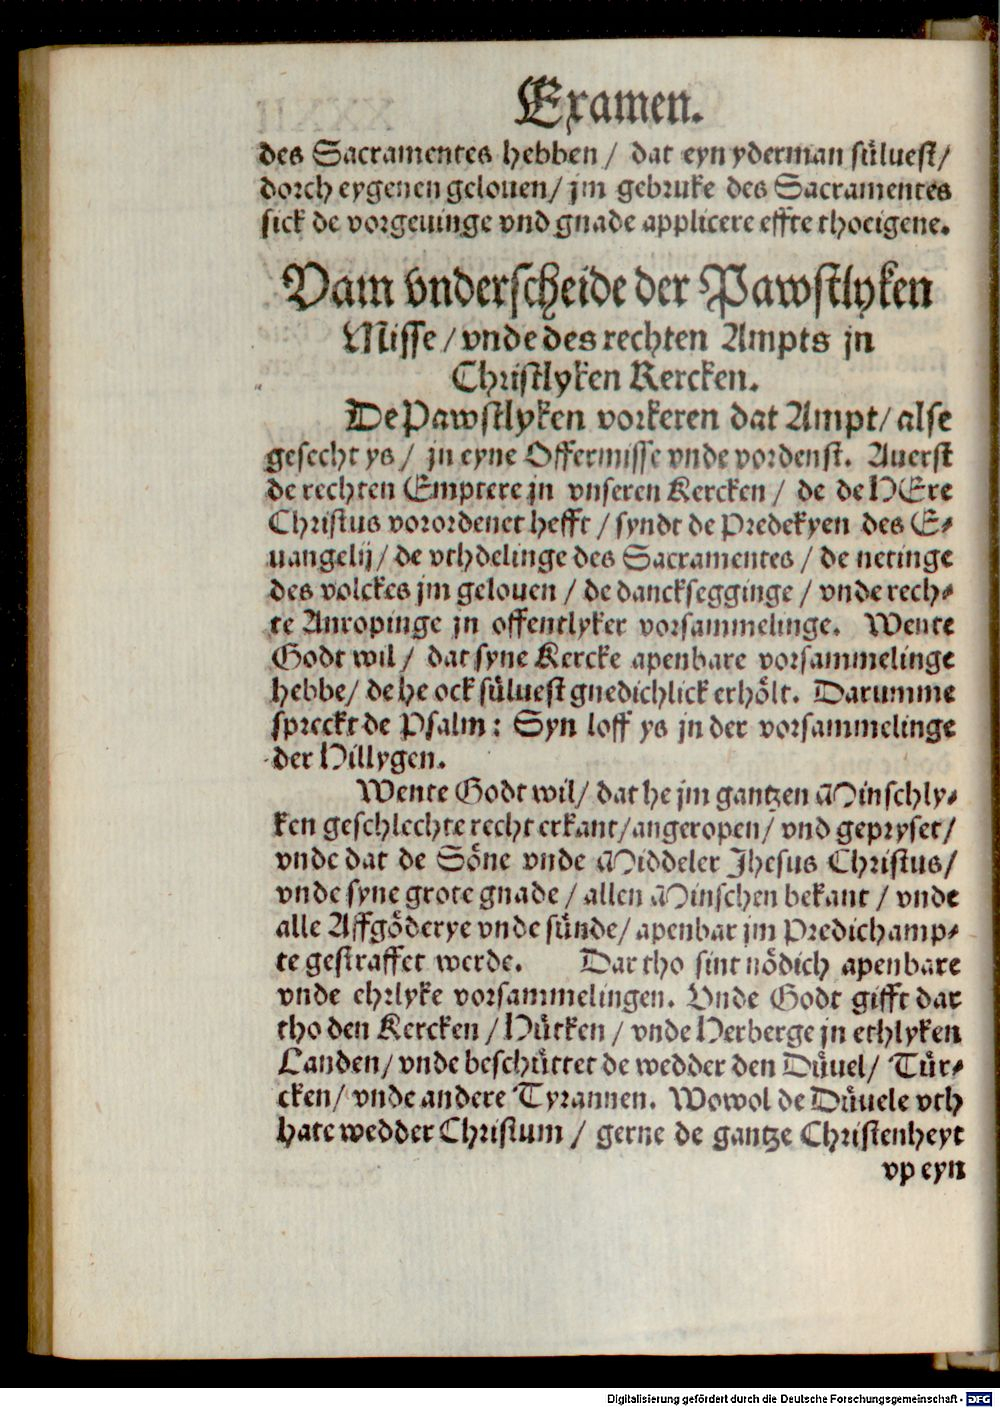 Examen.
des Sacramentes hebben / dat eyn yderman süluest/
dorch eygenen gelouen/ jm gebruke des Sacramentes
sick de vorgeuinge vnd gnade applicere effte thoeigene.
Vam vnderscheide der Pawstlyken
Misse / vnde des rechten Ampts jn
Christlyken Kercken.
De Pawstlyken vorkeren dat Ampt/ alse
gesecht ys / jn eyne Offermisse vnde vordenst. Auerst
de rechten Emptere jn vnseren Kercken / de de HEre
Christus vorordenet hefft / syndt de Predekyen des E⸗
uangelij/ de vthdelinge des Sacramentes / de netinge
des volckes jm gelouen / de dancksegginge / vnde rech⸗
te Anropinge jn offentlyker vorsammelinge. Wente
Godt wil / dat syne Kercke apenbare vorsammelinge
hebbe/ de he ock süluest gnedichlick erhölt. Darumme
spreckt de Psalm: Syn loff ys jn der vorsammelinge
der Hillygen.
Wente Godt wil/ dat he jm gantzen Minschly⸗
ken geschlechte recht erkant/angeropen/ vnd gepryset/
vnde dat de Söne vnde Middeler Jhesus Christus/
vnde syne grote gnade / allen Minschen bekant / vnde
alle Affgöderye vnde sünde/ apenbar jm Predichamp⸗
te gestraffet werde. Dar tho sint nödich apenbare
vnde ehrlyke vorsammelingen. Vnde Godt gifft dat
tho den Kercken / Hütken / vnde Herberge jn ethlyken
Landen/ vnde beschüttet de wedder den Düuel/ Tür⸗
cken/ vnde andere Tyrannen. Wowol de Düuele vth
hate wedder Christum / gerne de gantze Christenheyt
vp eyn
Digitalisierung gefördert durch die Deutsche Forschungsgemeinschaft - DFG